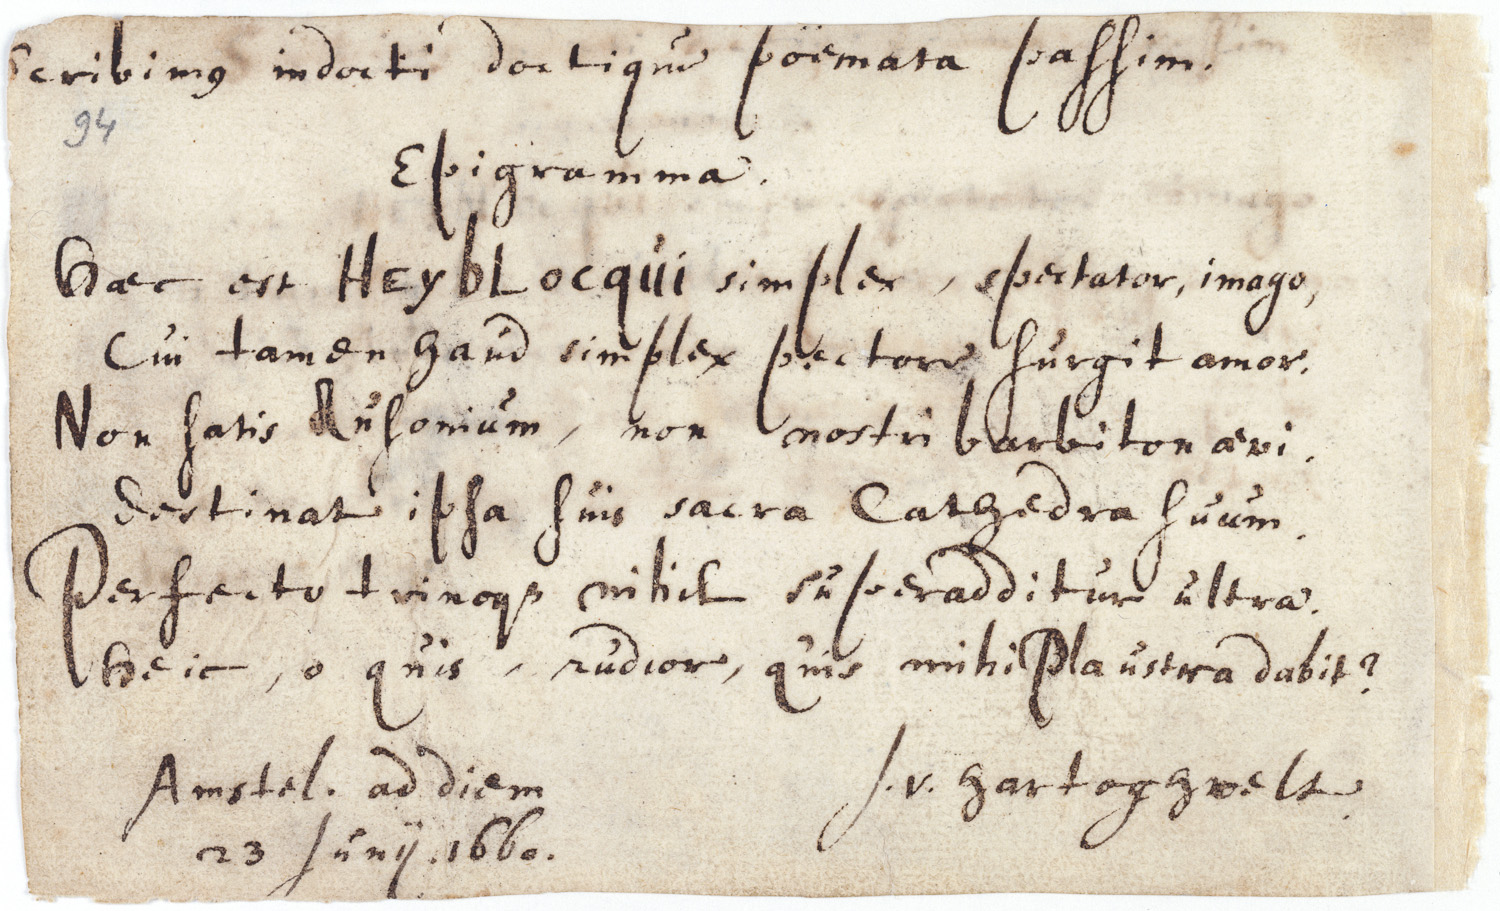 Scribimus indocti doctique pöemata passim.
94
Epigramma.
Haec est HEYBLOCQUI simplex, spectator, imago,
Cui tamen haud simplex pectore surgit amor.
Non satis Ausonium, non nostri barbiton aevi.
destinat ipsa suis sacra Cathedra suum.
Perfecto trinoq3 nihil superadditur ultra.
heic, o quis, rudior, quis mihi Plaustra dabit?
Amstel. ad diem
J. v. Hartoghvelt.
23 Junij. 1660.